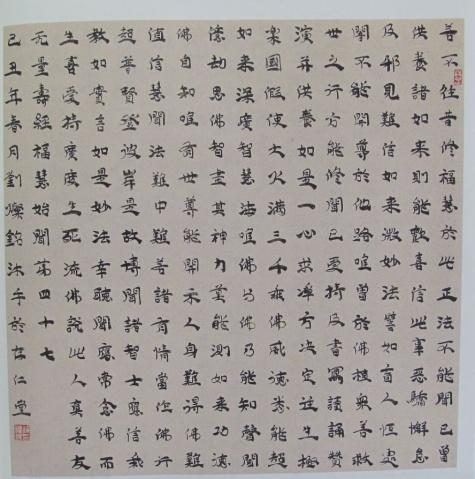 若不往昔修福慧於此正法不能聞已曾
供養諸如來則能歡喜信此事惡驕懈怠
及邪見難信如來微妙法譬如盲人恆處
闇不能開導於他路唯曾於佛植衆善救
世之行方能修聞已受持及書寫讀誦讚
演并供養如是一心求淨方決定往生極
樂國假使大火滿三千乘佛威德悉能超
如來深廣智慧海唯佛与佛乃能知聲聞
億劫思佛智盡其神力莫能測如來功德
佛自知唯有世尊能開示人身難得佛難
值信慧聞法難中難若諸有情當作佛行
超普賢登彼岸是故博聞諸智士應信我
教如實言如是妙法幸聽聞應常念佛而
生喜受持廣度生死流佛說此人真善友
无量壽經福慧始聞第四十七
己丑年春月劉燦銘沐手於仁堂